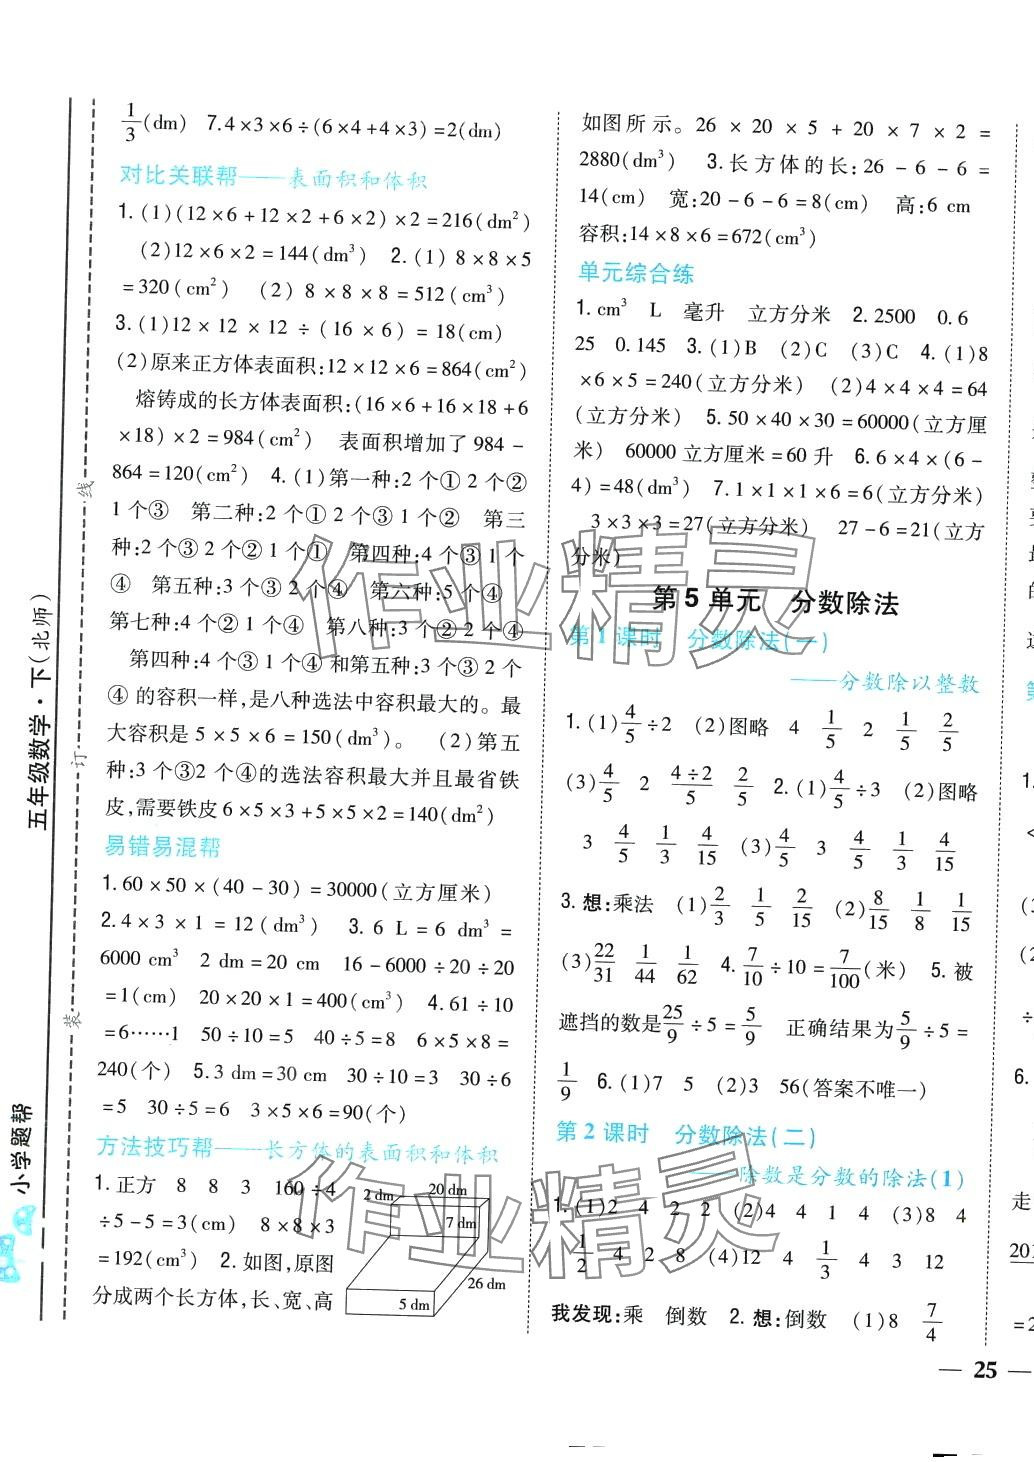 1/3(dm)　7.4×3×6÷(6×4+4×3)=2(dm)
对比关联帮——表面积和体积
1.(1)(12×6+12×2+6×2)×2=216(dm²)
(2)12×6×2=144(dm³)　2.(1) 8×8×5
=320(cm²)　(2) 8×8×8=512(cm³)
3.(1)12×12×12÷(16×6)=18(cm)
(2)原来正方体表面积:12×12×6=864(cm²)
熔铸成的长方体表面积:(16×6+16×18+6
×18)×2=984(cm²)　表面积增加了 984-
864=120(cm²)　4.(1)第一种:2个①2个②
1个③　第二种:2个①2个③1个②　第三
种:2个③2个②1个①　第四种:4个③1个
④　第五种:3个③2个④　第六种:5个③
第七种:4个②1个④　第八种:3个②2个④
第四种:4个③1个④和第五种:3个③2个
④的容积一样,是八种选法中容积最大的。最
大容积是5×5×6=150(dm³)。　(2)第五
种:3个③2个④的选法容积最大并且最省铁
皮,需要铁皮6×5×3+5×5×2=140(dm²)
易错易混帮
1.60×50×(40-30)=30000(立方厘米)
2.4×3×1=12(dm³)　3.6 L=6 dm³=
6000 cm³　2 dm=20 cm　16-6000÷20÷20
=1(cm)　20×20×1=400(cm³)　4.61÷10
=6……1　50÷10=5　40÷5=8　6×5×8=
240(个)　5.3 dm=30 cm　30÷10=3　30÷6
=5　30÷5=6　3×5×6=90(个)
方法技巧帮——长方体的表面积和体积
1.正方　8　8　3　160÷4
÷5-5=3(cm)　8×8×3
=192(cm³)　2.如图,原图
分成两个长方体,长、宽、高
20 dm
2 dm
7 dm
26 dm
5 dm
如图所示。26×20×5+20×7×2=
2880(dm³)　3.长方体的长:26-6-6=
14(cm)　宽:20-6-6=8(cm)　高:6 cm
容积:14×8×6=672(cm³)
单元综合练
1.cm³　L　毫升　立方分米　2.2500　0.6
25　0.145　3.(1)B　(2)C　(3)C　4.(1)8
×6×5=240(立方分米)　(2)4×4×4=64
(立方分米)　5.50×40×30=60000(立方厘
米)　60000立方厘米=60升　6.6×4×(6-
4)=48(dm³)　7.1×1×1×6=6(立方分米)
3×3×3=27(立方分米)　27-6=21(立方
分米)
第5单元　分数除法
第1课时　分数除法(一)
——分数除以整数
1.(1)4/5÷2　(2)图略　4　1/5　2　1/5　2/5
(3)4/5　2　4÷2/5　2/5　2.(1)4/5÷3　(2)图略
3　4/5　1/3　4/15　(3)4/5　3　4/5　1/3　4/15
3.想:乘法　(1)2/3　1/5　2/15　(2)8/15　1/8　1/15
(3)22/31　1/44　1/62　4.7/10÷10=7/100(米)　5.被
遮挡的数是25/9÷5=5/9　正确结果为5/9÷5=
1/9　6.(1)7　5　(2)3　56(答案不唯一)
第2课时　分数除法(二)
——除数是分数的除法(1)
1.(1)2　4　2　2　(2)4　4　1　4　(3)8　4
1/2　4　2　8　(4)12　4　1/3　4　3　12
我发现:乘　倒数　2.想:倒数　(1)8　7/4
— 25 —
五年级数学·下(北师)
小学题帮
线
订
装
作业精灵
作业精灵